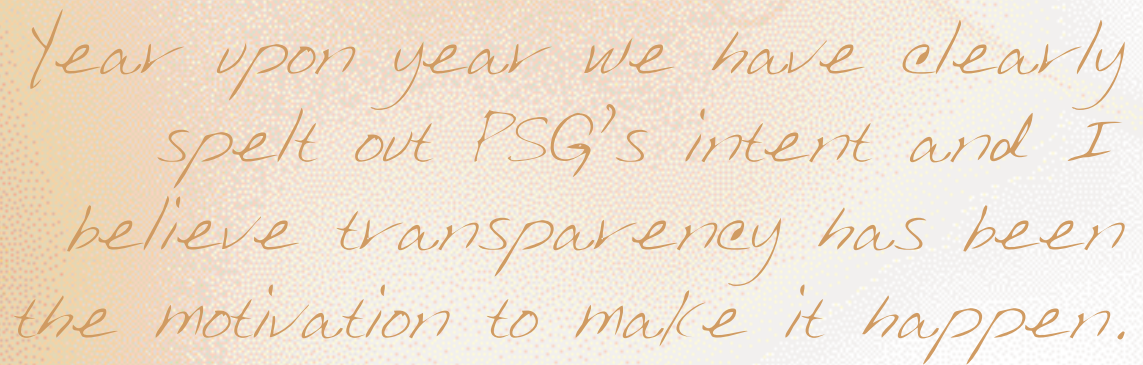 Year upon year we have clearly
spelt out PSG's intent and I
believe transparency has been
the motivation to make it happen.